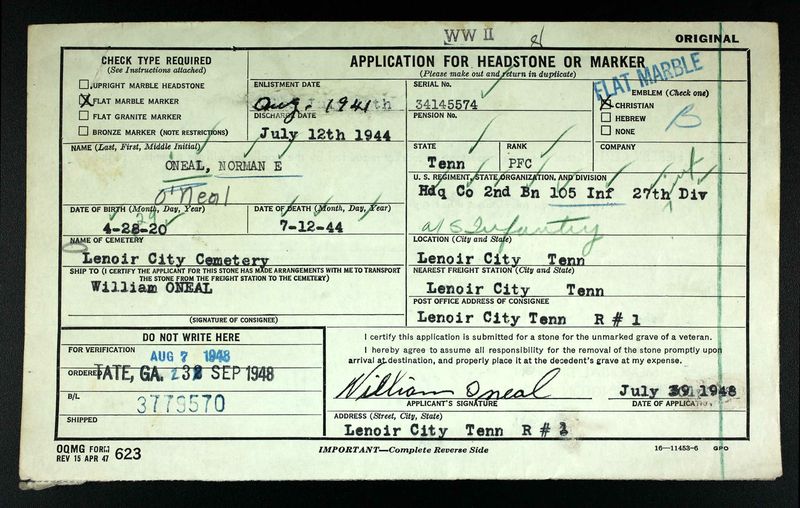 WW II
ORIGINAL
CHECK TYPE REQUIRED
(See Instructions attached)
UPRIGHT MARBLE HEADSTONE
X FLAT MARBLE MARKER
FLAT GRANITE MARKER
BRONZE MARKER (NOTE RESTRICTIONS)
APPLICATION FOR HEADSTONE OR MARKER
(Please make out and return in duplicate)
FLAT MARBLE
ENLISTMENT DATE
Aug. 1941
DISCHARGE DATE
July 12th 1944
SERIAL No.
34145574
PENSION No.
EMBLEM (Check one)
X CHRISTIAN
HEBREW
NONE
B
NAME (Last, First, Middle Initial)
ONEAL, NORMAN E
O'Neal
STATE
Tenn
RANK
PFC
COMPANY
U. S. REGIMENT, STATE ORGANIZATION, AND DIVISION
Hdq Co 2nd Bn 105 Inf 27th Div
inf
a/s Infantry
DATE OF BIRTH (Month, Day, Year)
4-28-20
29
DATE OF DEATH (Month, Day, Year)
7-12-44
NAME OF CEMETERY
Lenoir City Cemetery
LOCATION (City and State)
Lenoir City Tenn
SHIP TO (I CERTIFY THE APPLICANT FOR THIS STONE HAS MADE ARRANGEMENTS WITH ME TO TRANSPORT
THE STONE FROM THE FREIGHT STATION TO THE CEMETERY)
William ONEAL
(SIGNATURE OF CONSIGNEE)
NEAREST FREIGHT STATION (City and State)
Lenoir City Tenn
POST OFFICE ADDRESS OF CONSIGNEE
Lenoir City Tenn R # 1
DO NOT WRITE HERE
FOR VERIFICATION
AUG 7 1948
ORDERED
TATE, GA. SEP 1948
B/L
3779570
SHIPPED
I certify this application is submitted for a stone for the unmarked grave of a veteran.
I hereby agree to assume all responsibility for the removal of the stone promptly upon
arrival at destination, and properly place it at the decedent's grave at my expense.
William Oneal
APPLICANT'S SIGNATURE
July 1948
DATE OF APPLICATION
ADDRESS (Street, City, State)
Lenoir City Tenn R #
OQMG FORM
REV 15 APR 47
623
IMPORTANT—Complete Reverse Side
16—11453-6 GPO